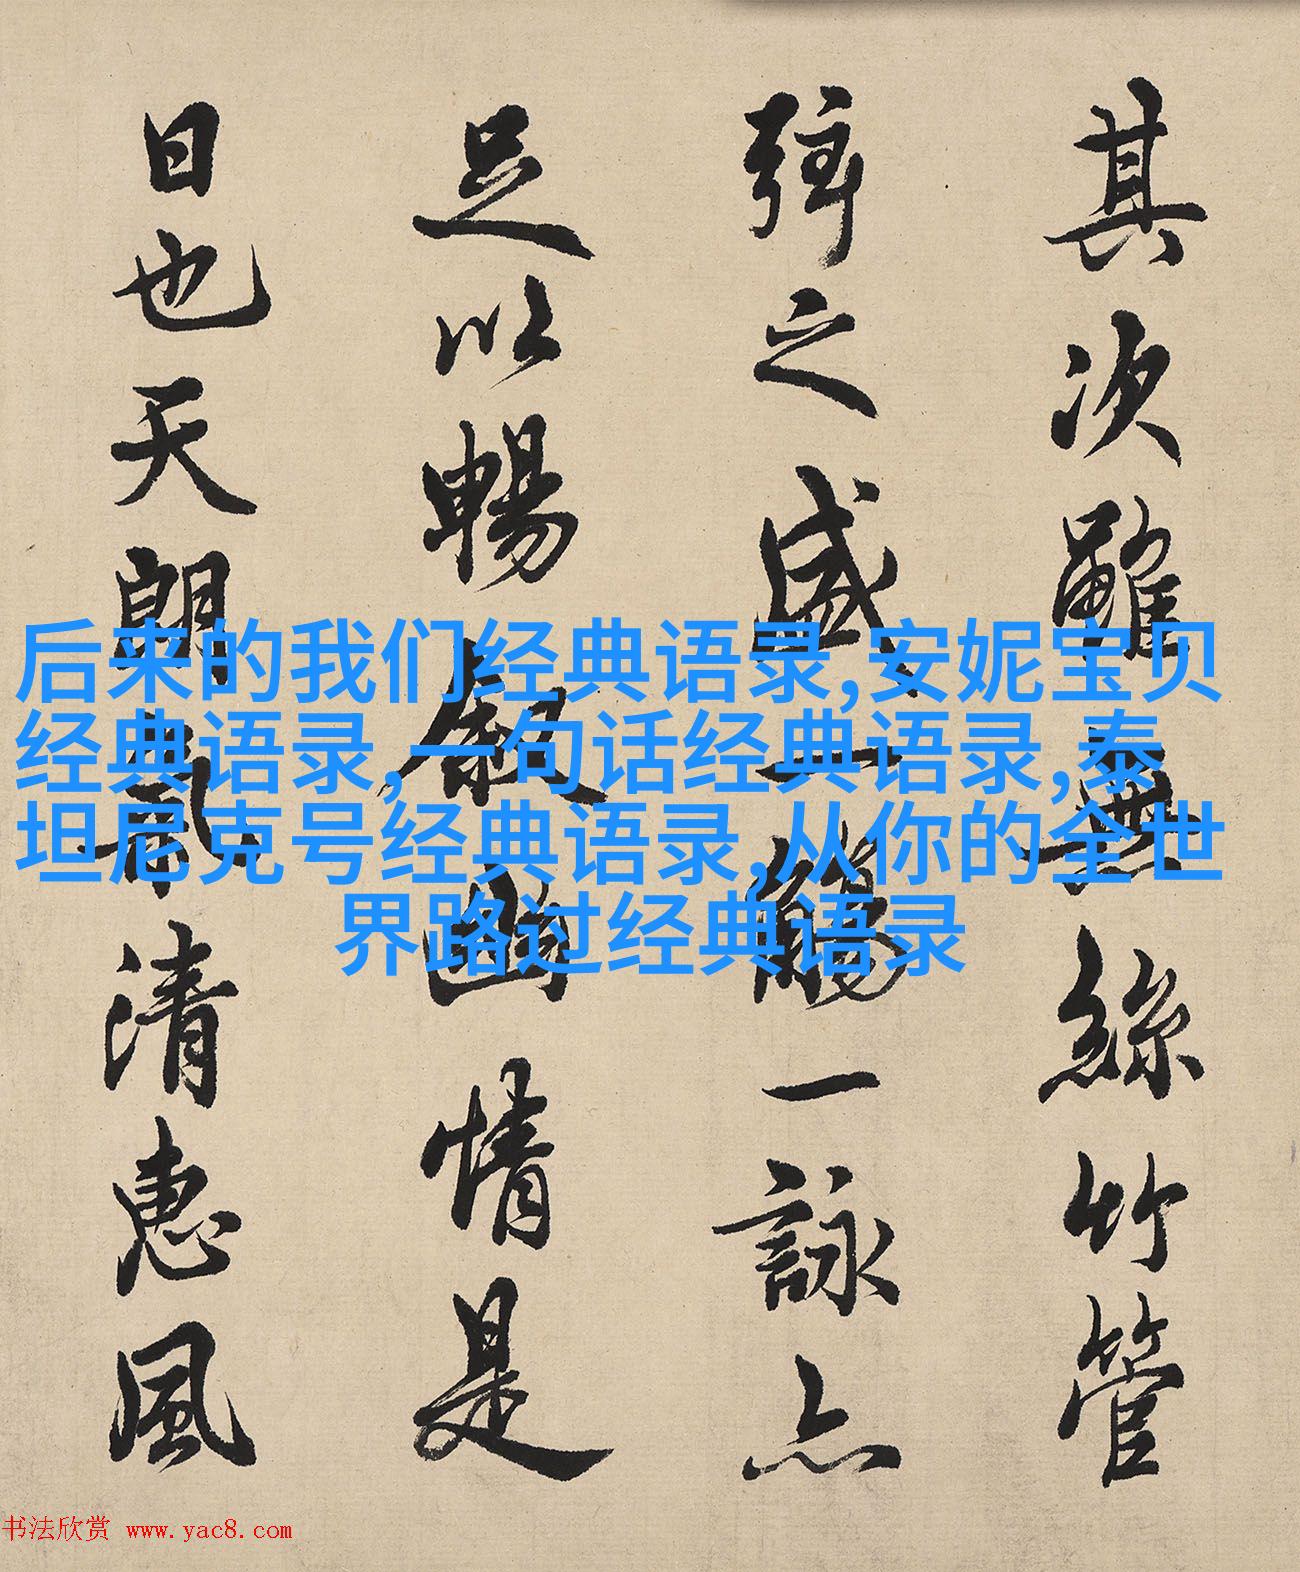 其次雖無絲竹管
弦之盛一觴一詠亦
足以暢叙幽情是
日也天朗氣清惠風
后来的我们经典语录,安妮宝贝
经典语录,一句话经典语录,泰
坦尼克号经典语录,从你的全世
界路过经典语录
书法欣赏 www.yac8.com